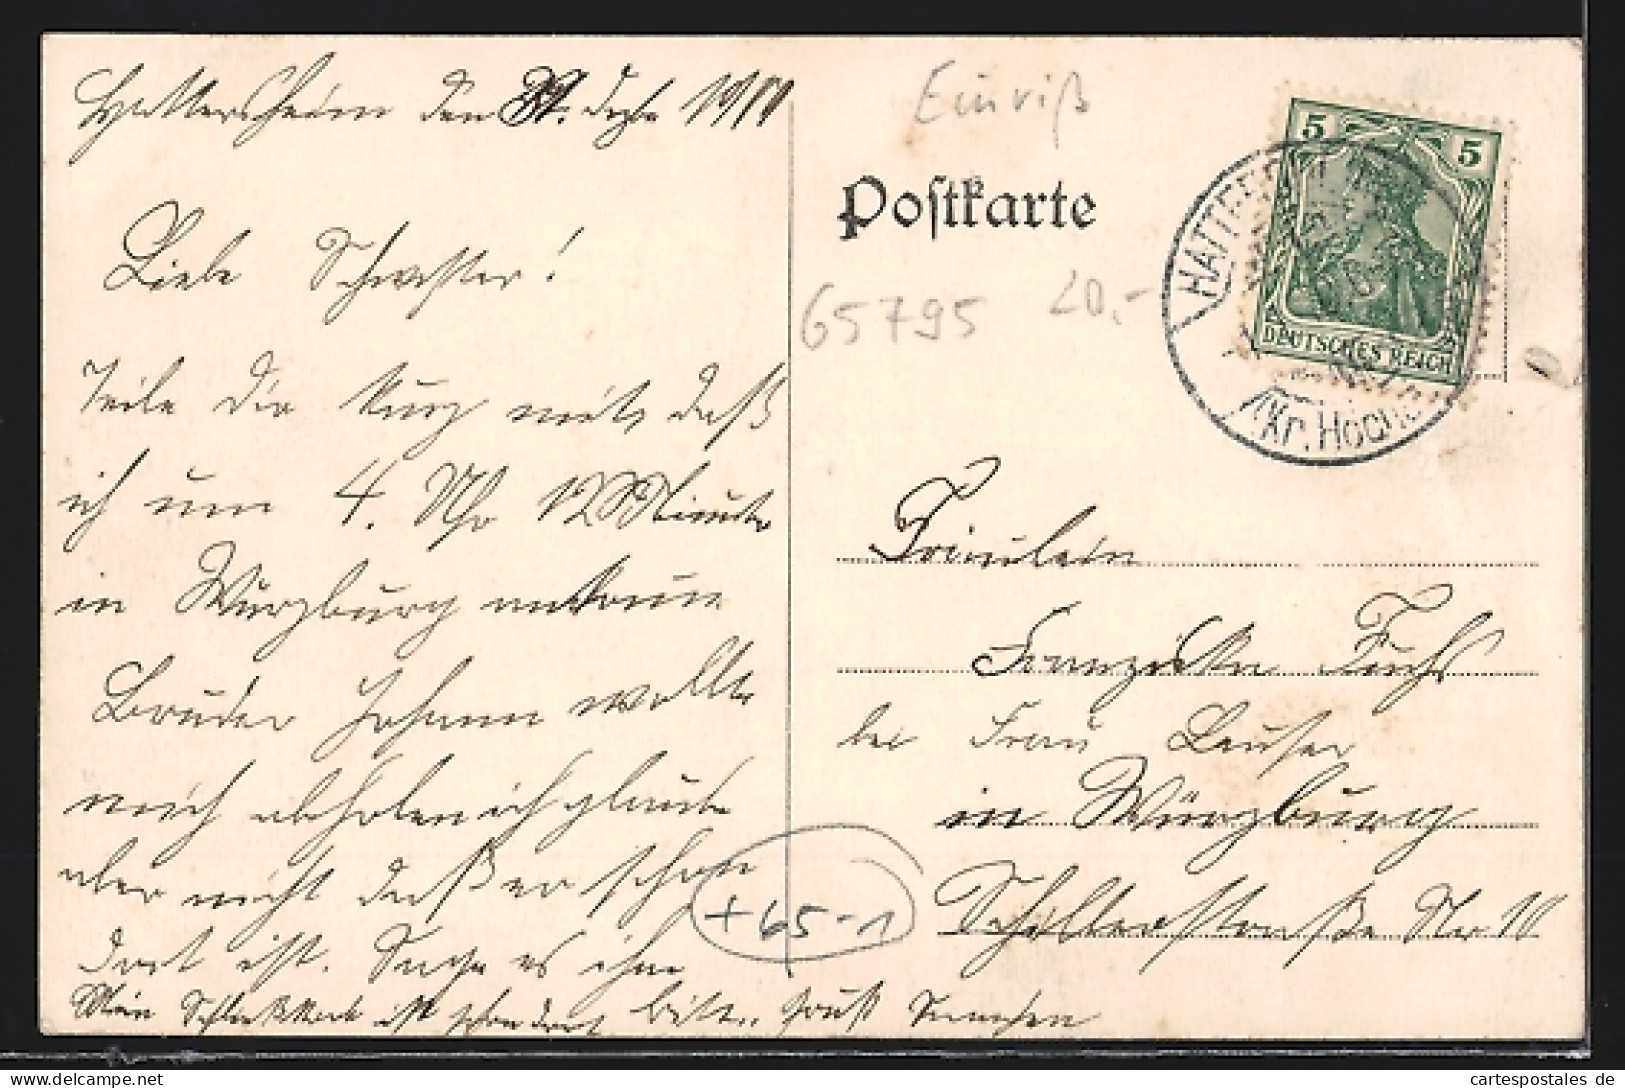 Hattersheim den 31. Dezbr 1911
Liebe Schwester!
Teile dir kurz mit, daß
ich um 4. Uhr 12 Minute
in Würzburg ankomme
Bruder Johann wollte
mich abholen ich glaube
aber nicht daß er schon
dort ist. Sage es ihm
bitte. Gruß
Mein ist schon dort
Einriß
Postkarte
65795 20.-
+65-1
5 5
DEUTSCHES REICH
HATTERSHEIM
(Kr. Höchst
Fräulein
Franziska Fuchs
bei Frau
in Würzburg
Schillerstraße Nr 10
cartespostales de